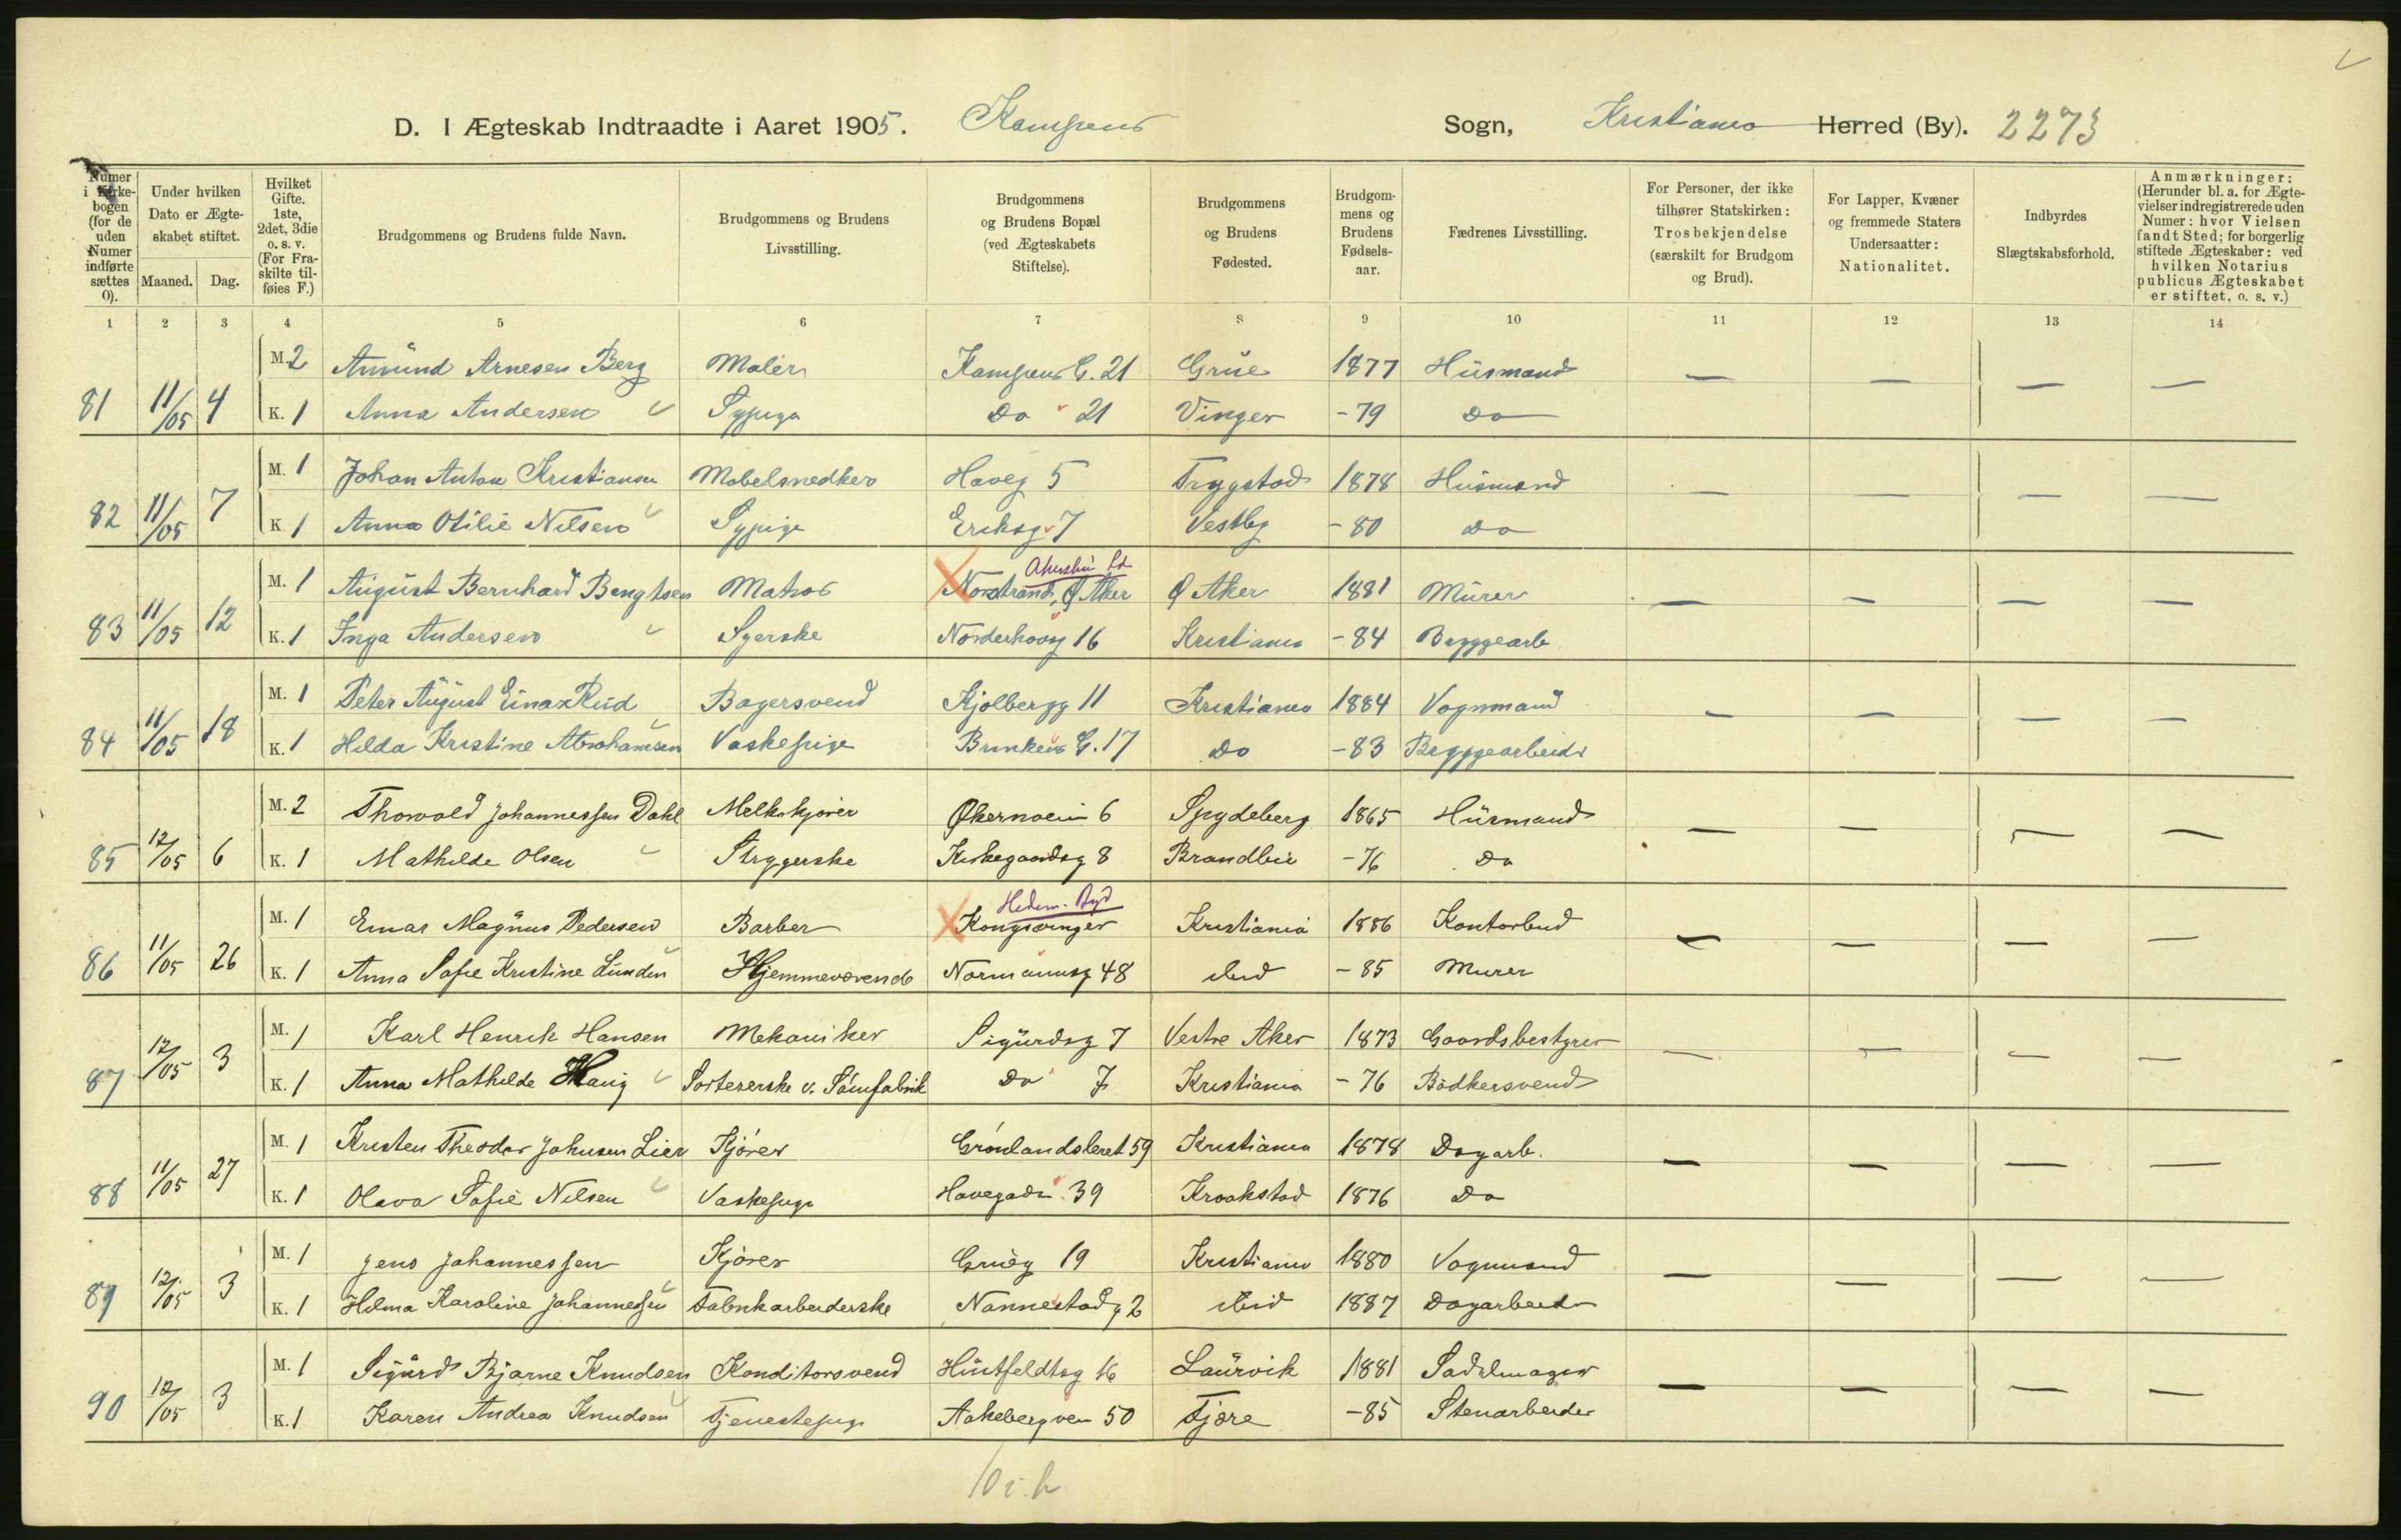 D. I Ægteskab Indtraadte i Aaret 1905. Kampens Sogn, Kristiania Herred (By). 2273
Numer i Kirkebogen (for de uden Numer indførte sættes 0).
Under hvilken Dato er Ægteskabet stiftet.
Maaned. Dag.
Hvilket Gifte. 1ste, 2det, 3die o. s. v. (For Fraskilte tilføies F.)
Brudgommens og Brudens fulde Navn.
Brudgommens og Brudens Livsstilling.
Brudgommens og Brudens Bopæl (ved Ægteskabets Stiftelse).
Brudgommens og Brudens Fødested.
Brudgommens og Brudens Fødselsaar.
Fædrenes Livsstilling.
For Personer, der ikke tilhører Statskirken: Trosbekjendelse (særskilt for Brudgom og Brud).
For Lapper, Kvæner og fremmede Staters Undersaatter: Nationalitet.
Indbyrdes Slægtskabsforhold.
Anmærkninger: (Herunder bl. a. for Ægtevielser indregistrerede uden Numer: hvor Vielsen fandt Sted; for borgerlig stiftede Ægteskaber: ved hvilken Notarius publicus Ægteskabet er stiftet, o. s. v.)
1 2 3 4 5 6 7 8 9 10 11 12 13 14
M. 2 Amund Arnesen Berg Maler Kampens G. 21 Grue 1877 Husmand
81 11/05 4 K. 1 Anna Andersen Sypige Do 21 Vinger -79 Do
M. 1 Johan Anton Kristiansen Møbelsnedker Haveg 5 Trygstad 1878 Husmand
82 11/05 7 K. 1 Anna Otilie Nilsen Sypige Eriksg. 7 Vestby -80 Do
Akershus
M. 1 August Bernhard Bengtsen Matros Nordstrand, Ø Aker Ø Aker 1881 Murer
83 11/05 12 K. 1 Inga Andersen Syerske Norderhovsg 16 Kristiania -84 Bryggearb
M. 1 Peter August Einar Rud Bagersvend Kjølbergg 11 Kristiania 1884 Vognmand
84 11/05 18 K. 1 Hilda Kristine Abrahamsen Vaskepige Brinkens G. 17 Do -83 Bryggearbeider
M. 2 Thorvald Johannessen Dahl Melkekjører Økernveien 6 Spydeberg 1865 Husmand
85 12/05 6 K. 1 Mathilde Olsen Strygerske Kirkegaardsg 8 Brandbu -76 Do
Hedem. Byd
M. 1 Einar Magnus Pedersen Barber Kongsvinger Kristiania 1886 Kontorbud
86 11/05 26 K. 1 Anna Sofie Kristine Lunden Hjemmeværende Normannsg 48 ibid -85 Murer
M. 1 Karl Henrik Hansen Mekaniker Sigurdsg 7 Vestre Aker 1873 Gaardsbestyrer
87 12/05 3 K. 1 Anna Mathilde Haug Sortererske v. Sømfabrik Do 7 Kristiania -76 Bødkersvend
M. 1 Kristen Theodor Johnsen Lier Kjører Grønlandsleret 59 Kristiania 1878 Dagarb.
88 11/05 27 K. 1 Olava Sofie Nilsen Vaskepige Havegaden 39 Kraakstad 1876 Do
M. 1 Jens Johannessen Kjører Grueg 19 Kristiania 1880 Vognmand
89 12/05 3 K. 1 Hilma Karoline Johannessen Fabrikarbeiderske Nannestadg 2 ibid 1887 Dagarbeider
M. 1 Sigurd Bjarne Knudsen Konditorsvend Huitfeldtsg 16 Laurvik 1881 Sadelmager
90 12/05 3 K. 1 Karen Andrea Knudsen Tjenestepige Aakebergveien 50 Fjære -85 Stenarbeider